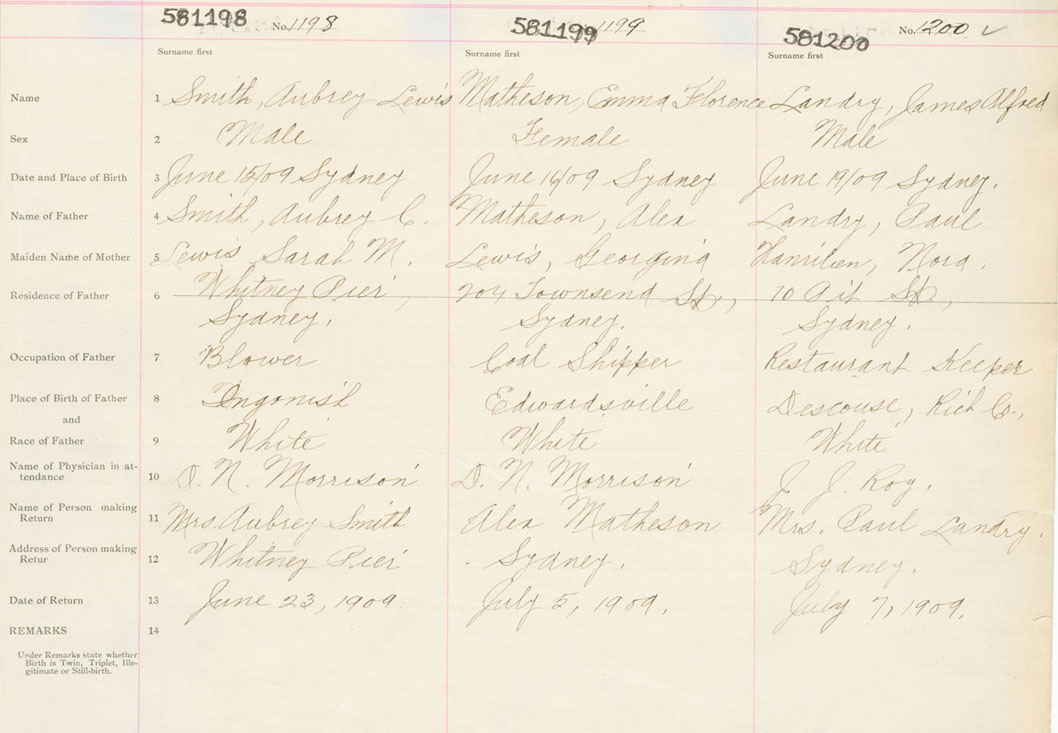 581198 No. 1198 581199 1199 581200 No. 1200
Surname first Surname first Surname first
Name 1 Smith, Aubrey Lewis Matheson, Emma Florence Landry, James Alfred
Sex 2 Male Female Male
Date and Place of Birth 3 June 15/09 Sydney June 16/09 Sydney June 19/09 Sydney.
Name of Father 4 Smith, Aubrey C. Matheson, Alex Landry, Paul
Maiden Name of Mother 5 Lewis Sarah M. Lewis, Georgina Nora.
Residence of Father 6 Whitney Pier, 204 Townsend St., 70 Pit St,
Sydney. Sydney. Sydney.
Occupation of Father 7 Blower Coal Shipper Restaurant Keeper
Place of Birth of Father 8 Ingonish Edwardsville Descouse, Rich Co.,
and
Race of Father 9 White White White
Name of Physician in at-
tendance 10 D. N. Morrison D. N. Morrison J. J. Roy.
Name of Person making
Return 11 Mrs. Aubrey Smith Alex Matheson Mrs. Paul Landry.
Address of Person making
Retur 12 Whitney Pier Sydney. Sydney.
Date of Return 13 June 23, 1909 July 5, 1909. July 7, 1909.
REMARKS 14
Under Remarks state whether
Birth is Twin, Triplet, Ille-
gitimate or Still-birth.